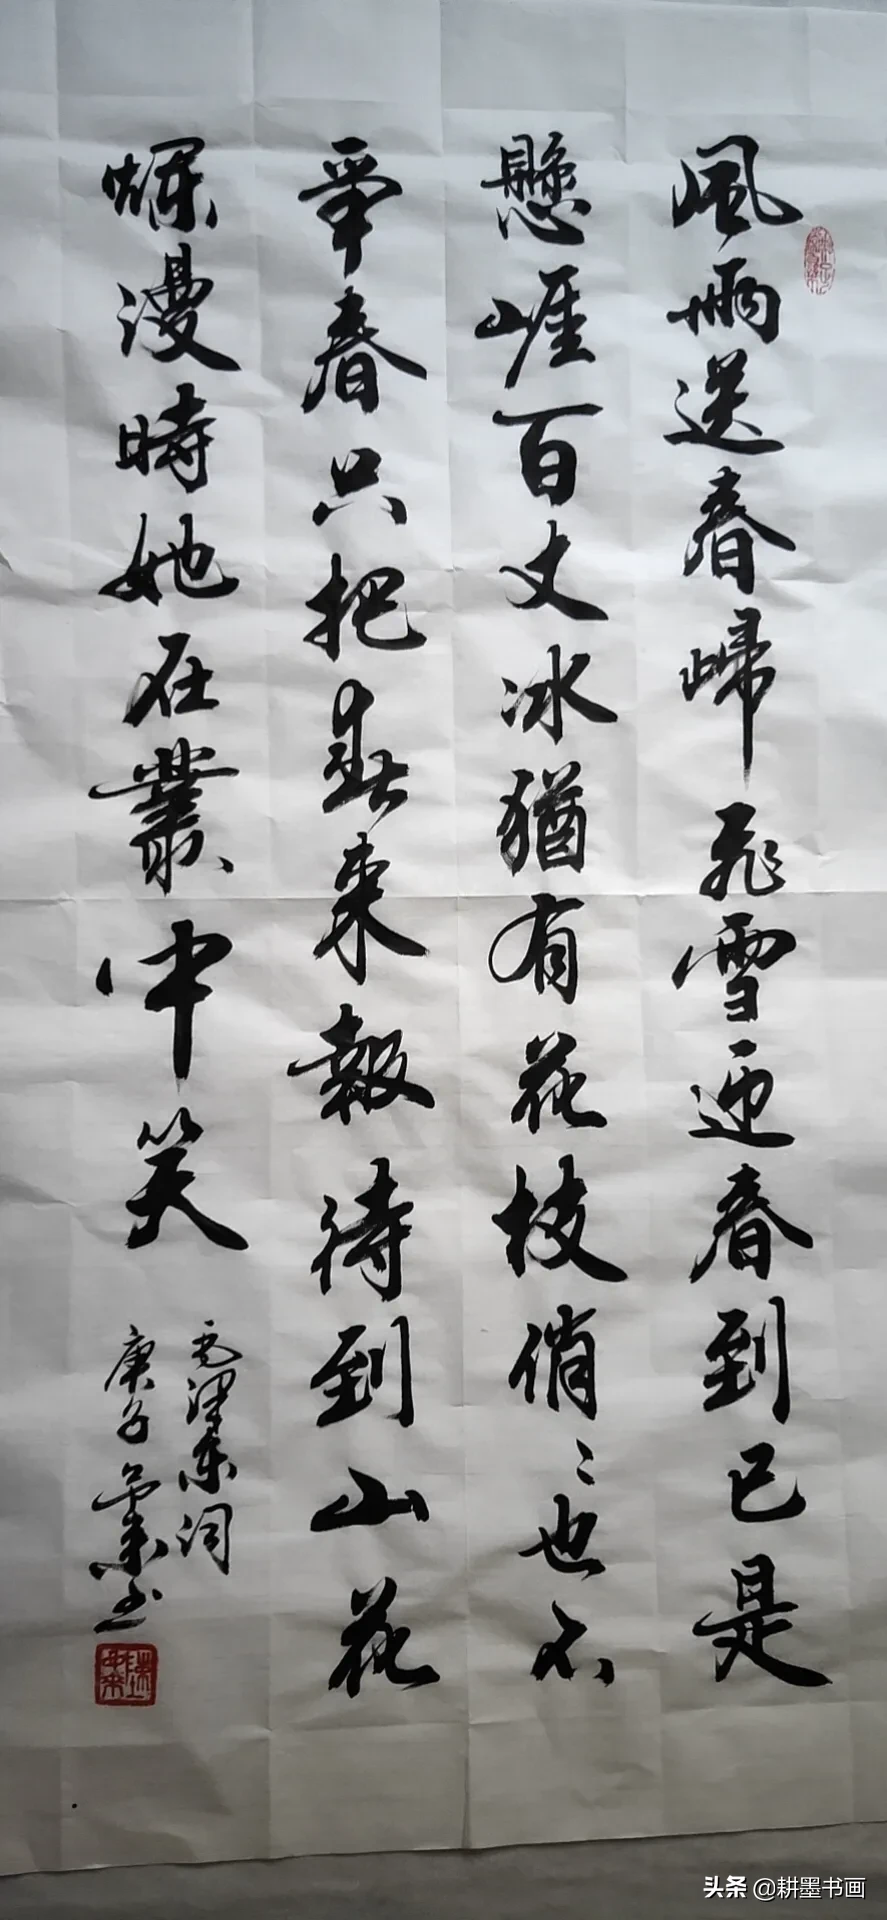 風雨送春歸飛雪迎春到已是
懸崖百丈冰猶有花枝俏〻也不
爭春只把春来報待到山花
爛漫時她在叢中笑
毛澤東词
庚子
头条 @耕墨书画